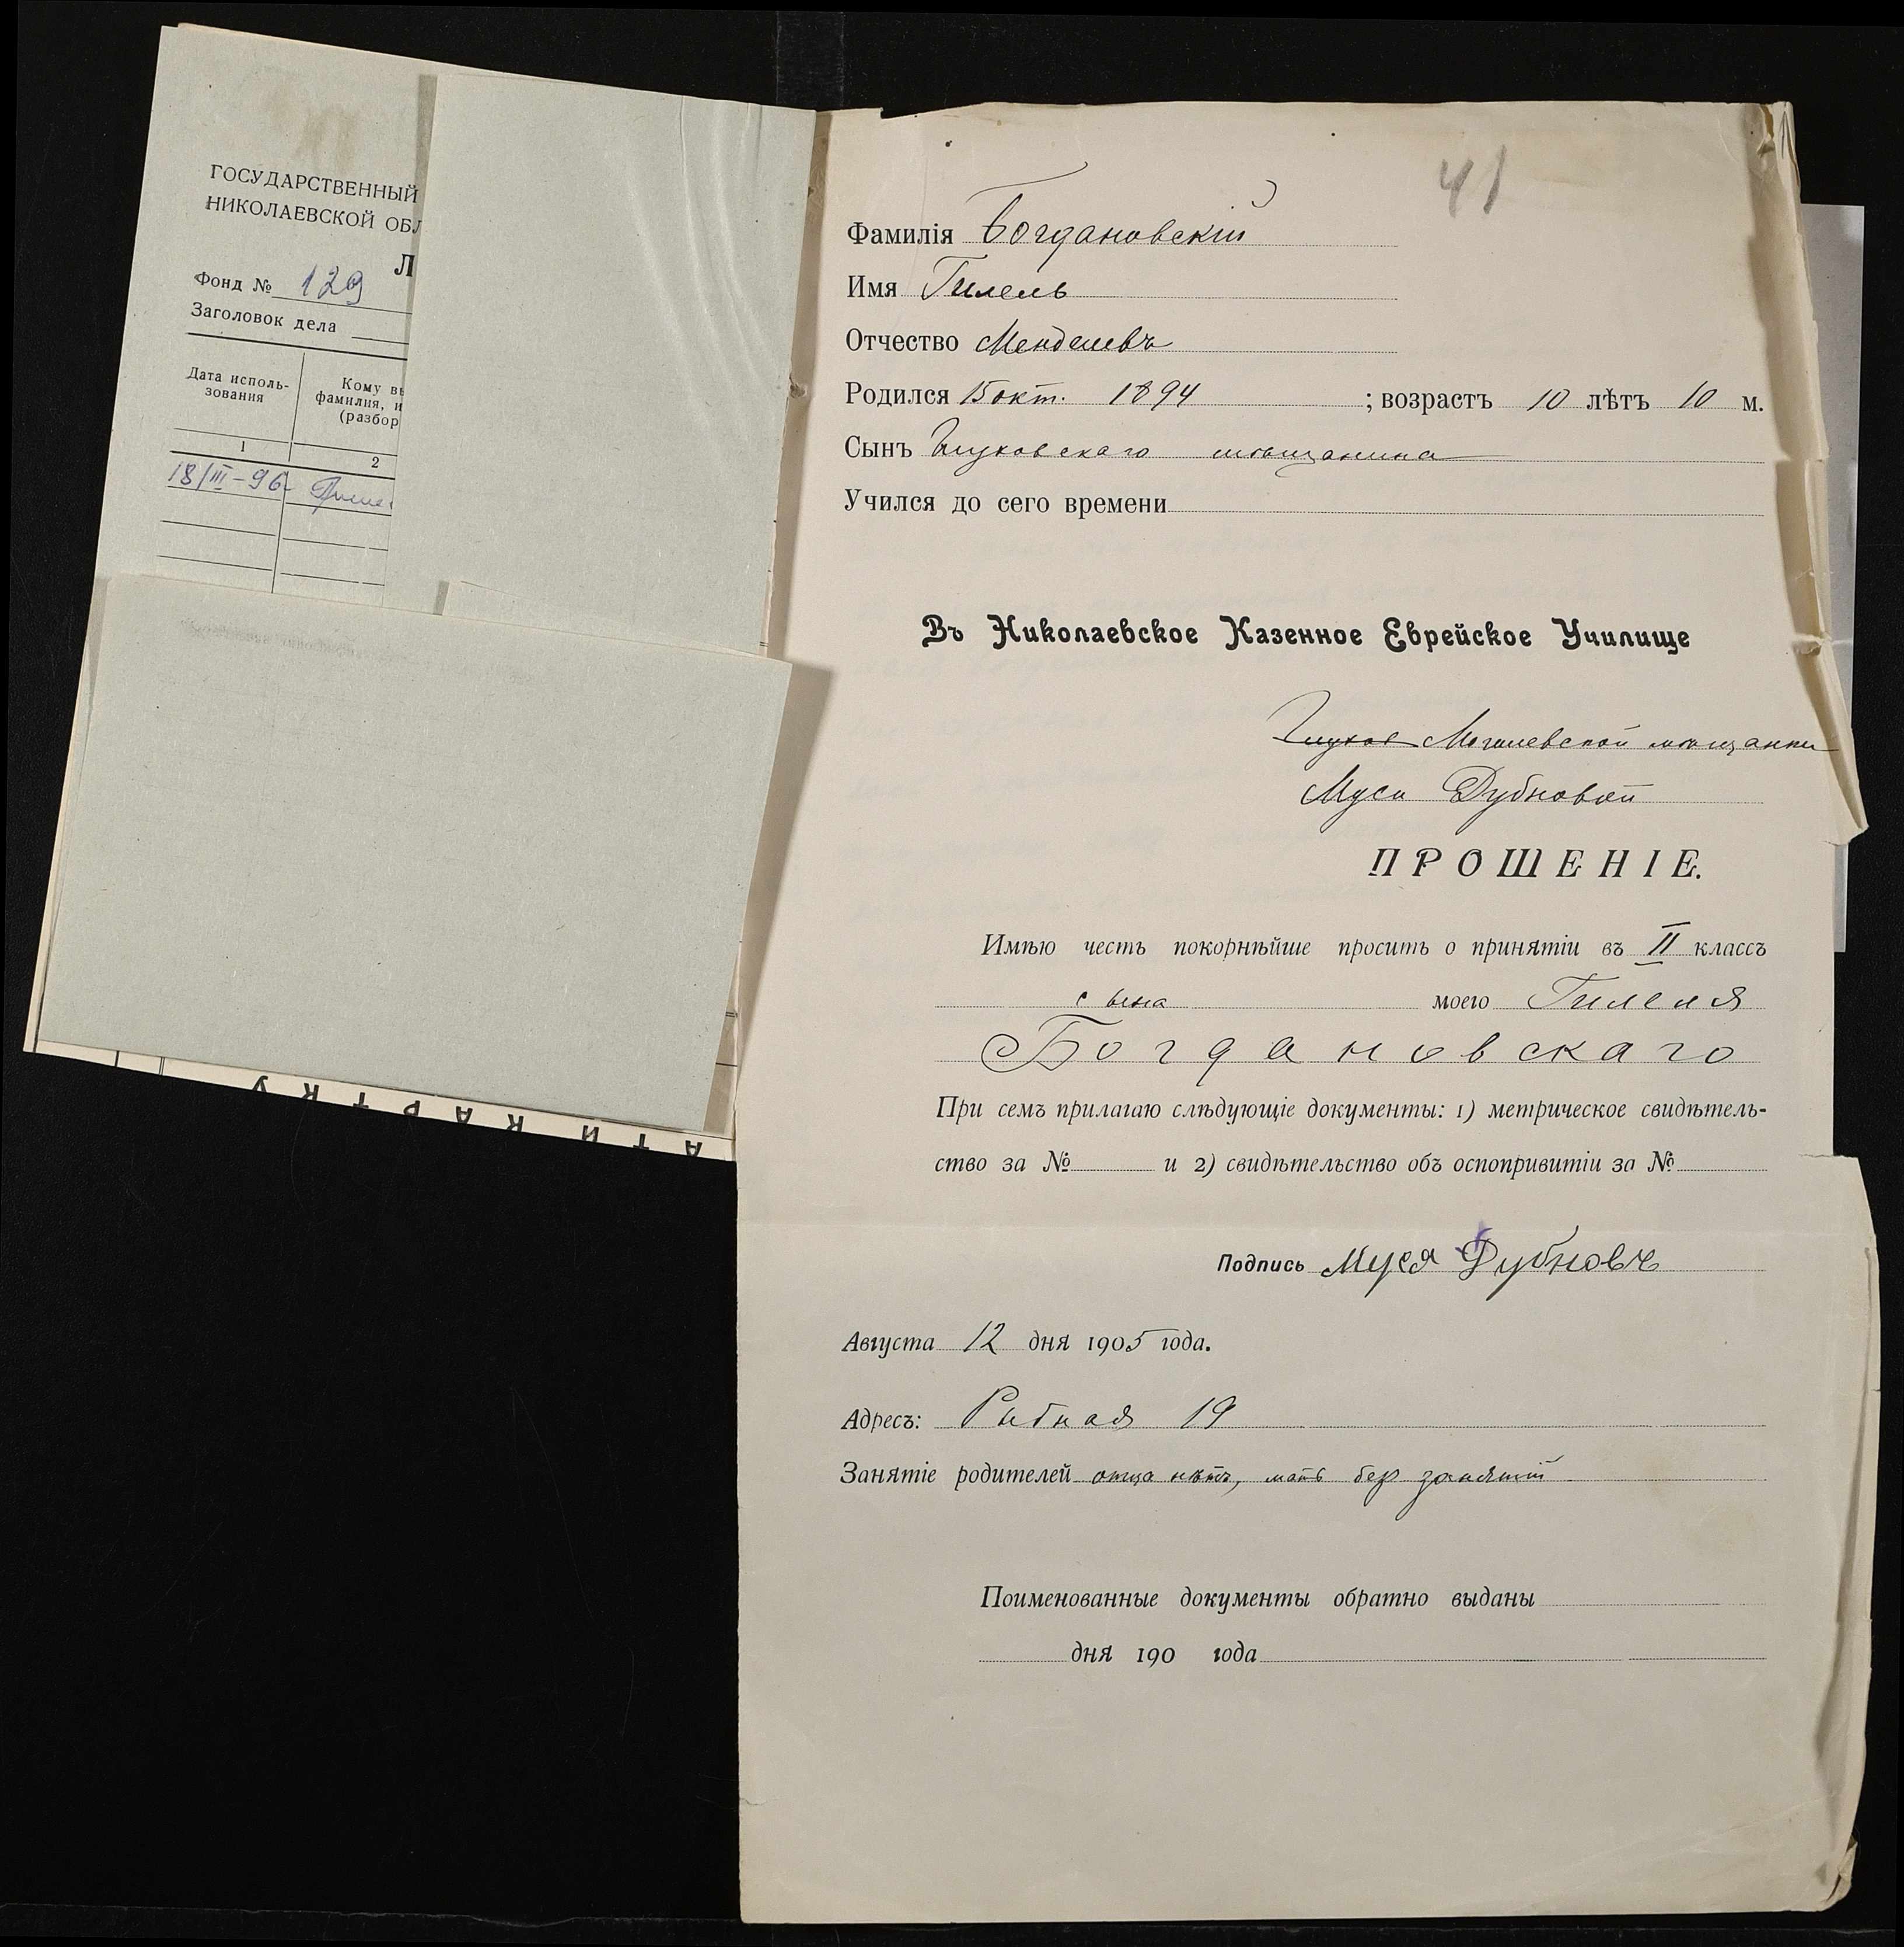 ГОСУДАРСТВЕННЫЙ
НИКОЛАЕВСКОЙ ОБЛ
Л
Фонд № 129
Заголовок дела
Дата исполь-
зования
Кому вы
фамилия, и
(разбор
1 2
18/III-96
АТИ КАРТКУ
41
Фамилія Богдановскій
Имя Гилель
Отчество Менделевъ
Родился 15 окт. 1894 ; возрастъ 10 лѣтъ 10 м.
Сынъ Глуховскаго мѣщанина
Учился до сего времени
Въ Николаевское Казенное Еврейское Училище
Глухов Могилевской мѣщанки
Муси Дубновой
ПРОШЕНІЕ.
Имѣю честь покорнѣйше просить о принятіи въ II классъ
сына моего Гилеля
Богдановскаго
При семъ прилагаю слѣдующіе документы: 1) метрическое свидѣтель-
ство за № и 2) свидѣтельство объ оспопривитіи за №
Подпись Муся Дубновъ
Августа 12 дня 1905 года.
Адресъ: Рыбная 19
Занятіе родителей отца нѣтъ, мать без занятій
Поименованные документы обратно выданы
дня 190 года